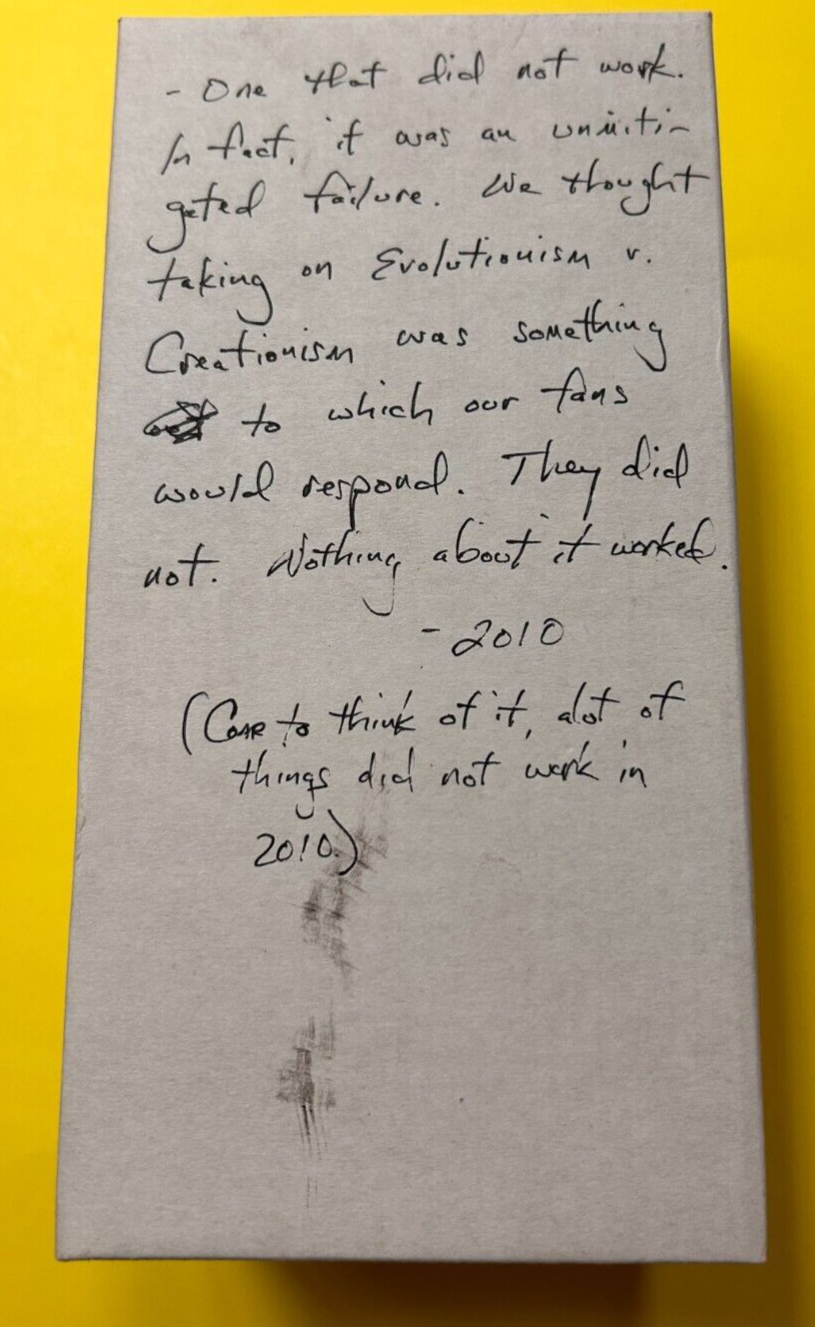 - One that did not work.
In fact, it was an unmiti-
gated failure. We thought
taking on Evolutionism v.
Creationism was something
to which our fans
would respond. They did
not. Nothing about it worked.
- 2010
(Come to think of it, alot of
things did not work in
2010.)